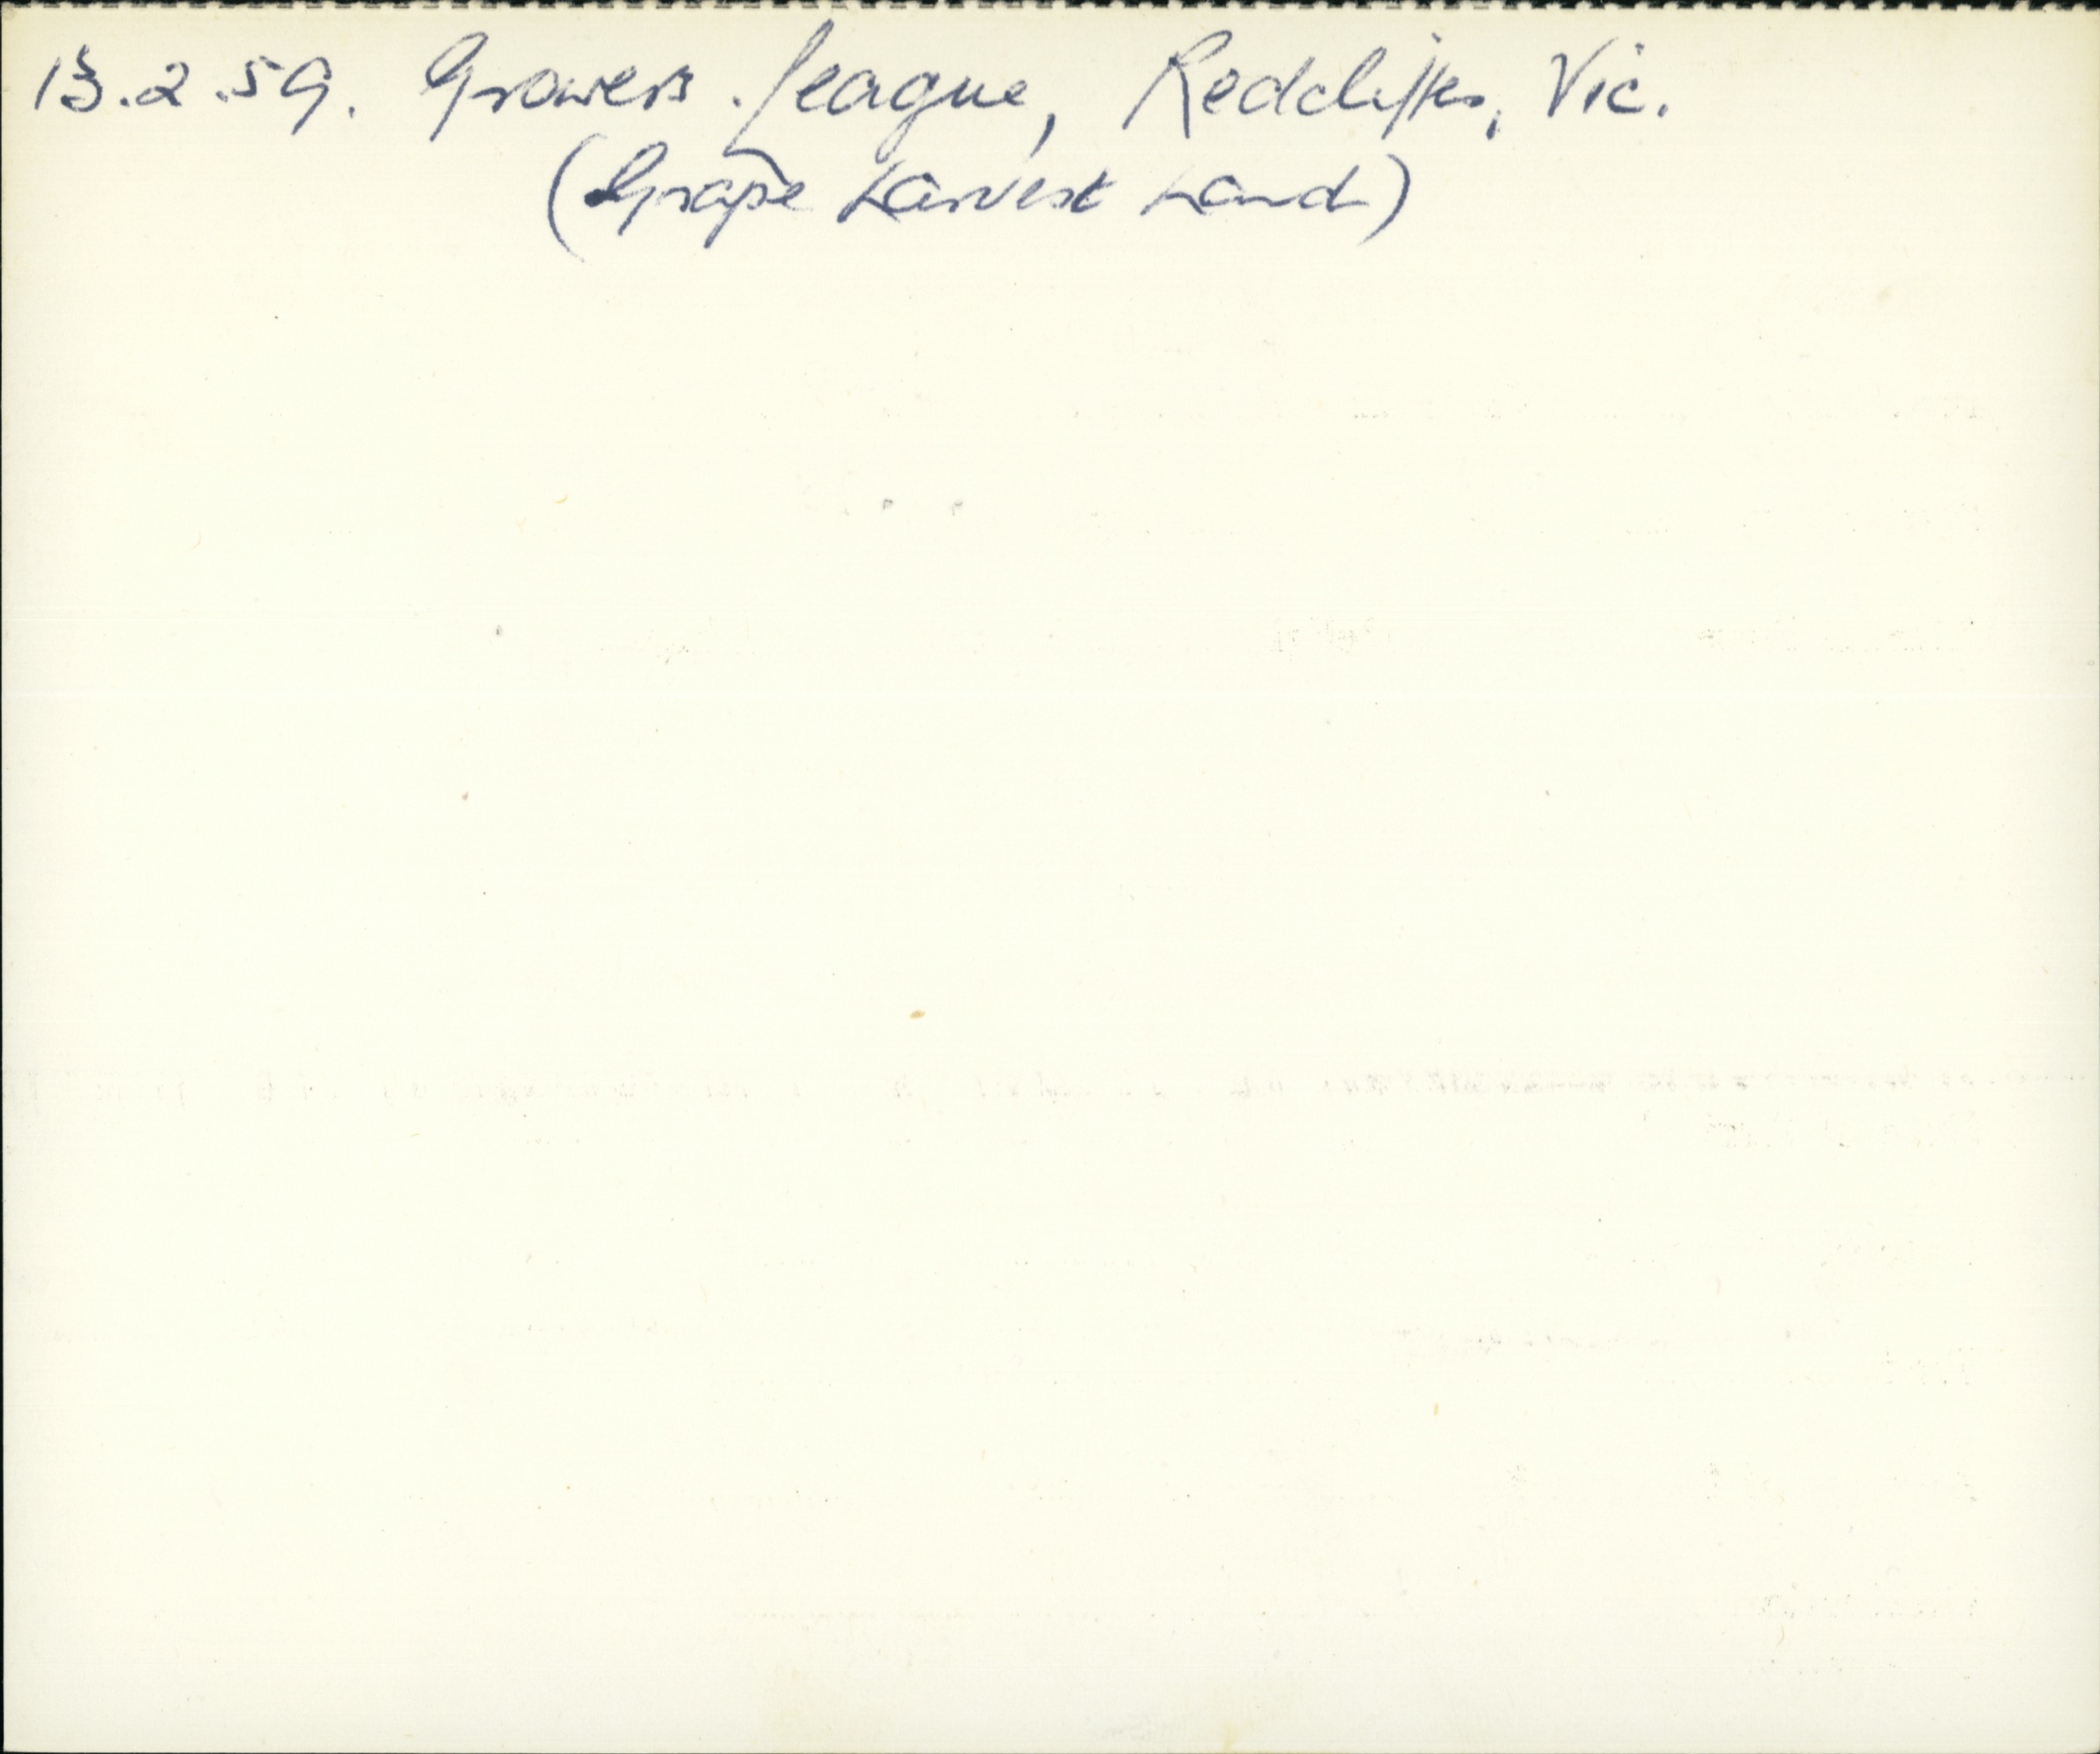 13.2.59. Growers League, Redcliffes, Vic.
(Grape harvest hand)